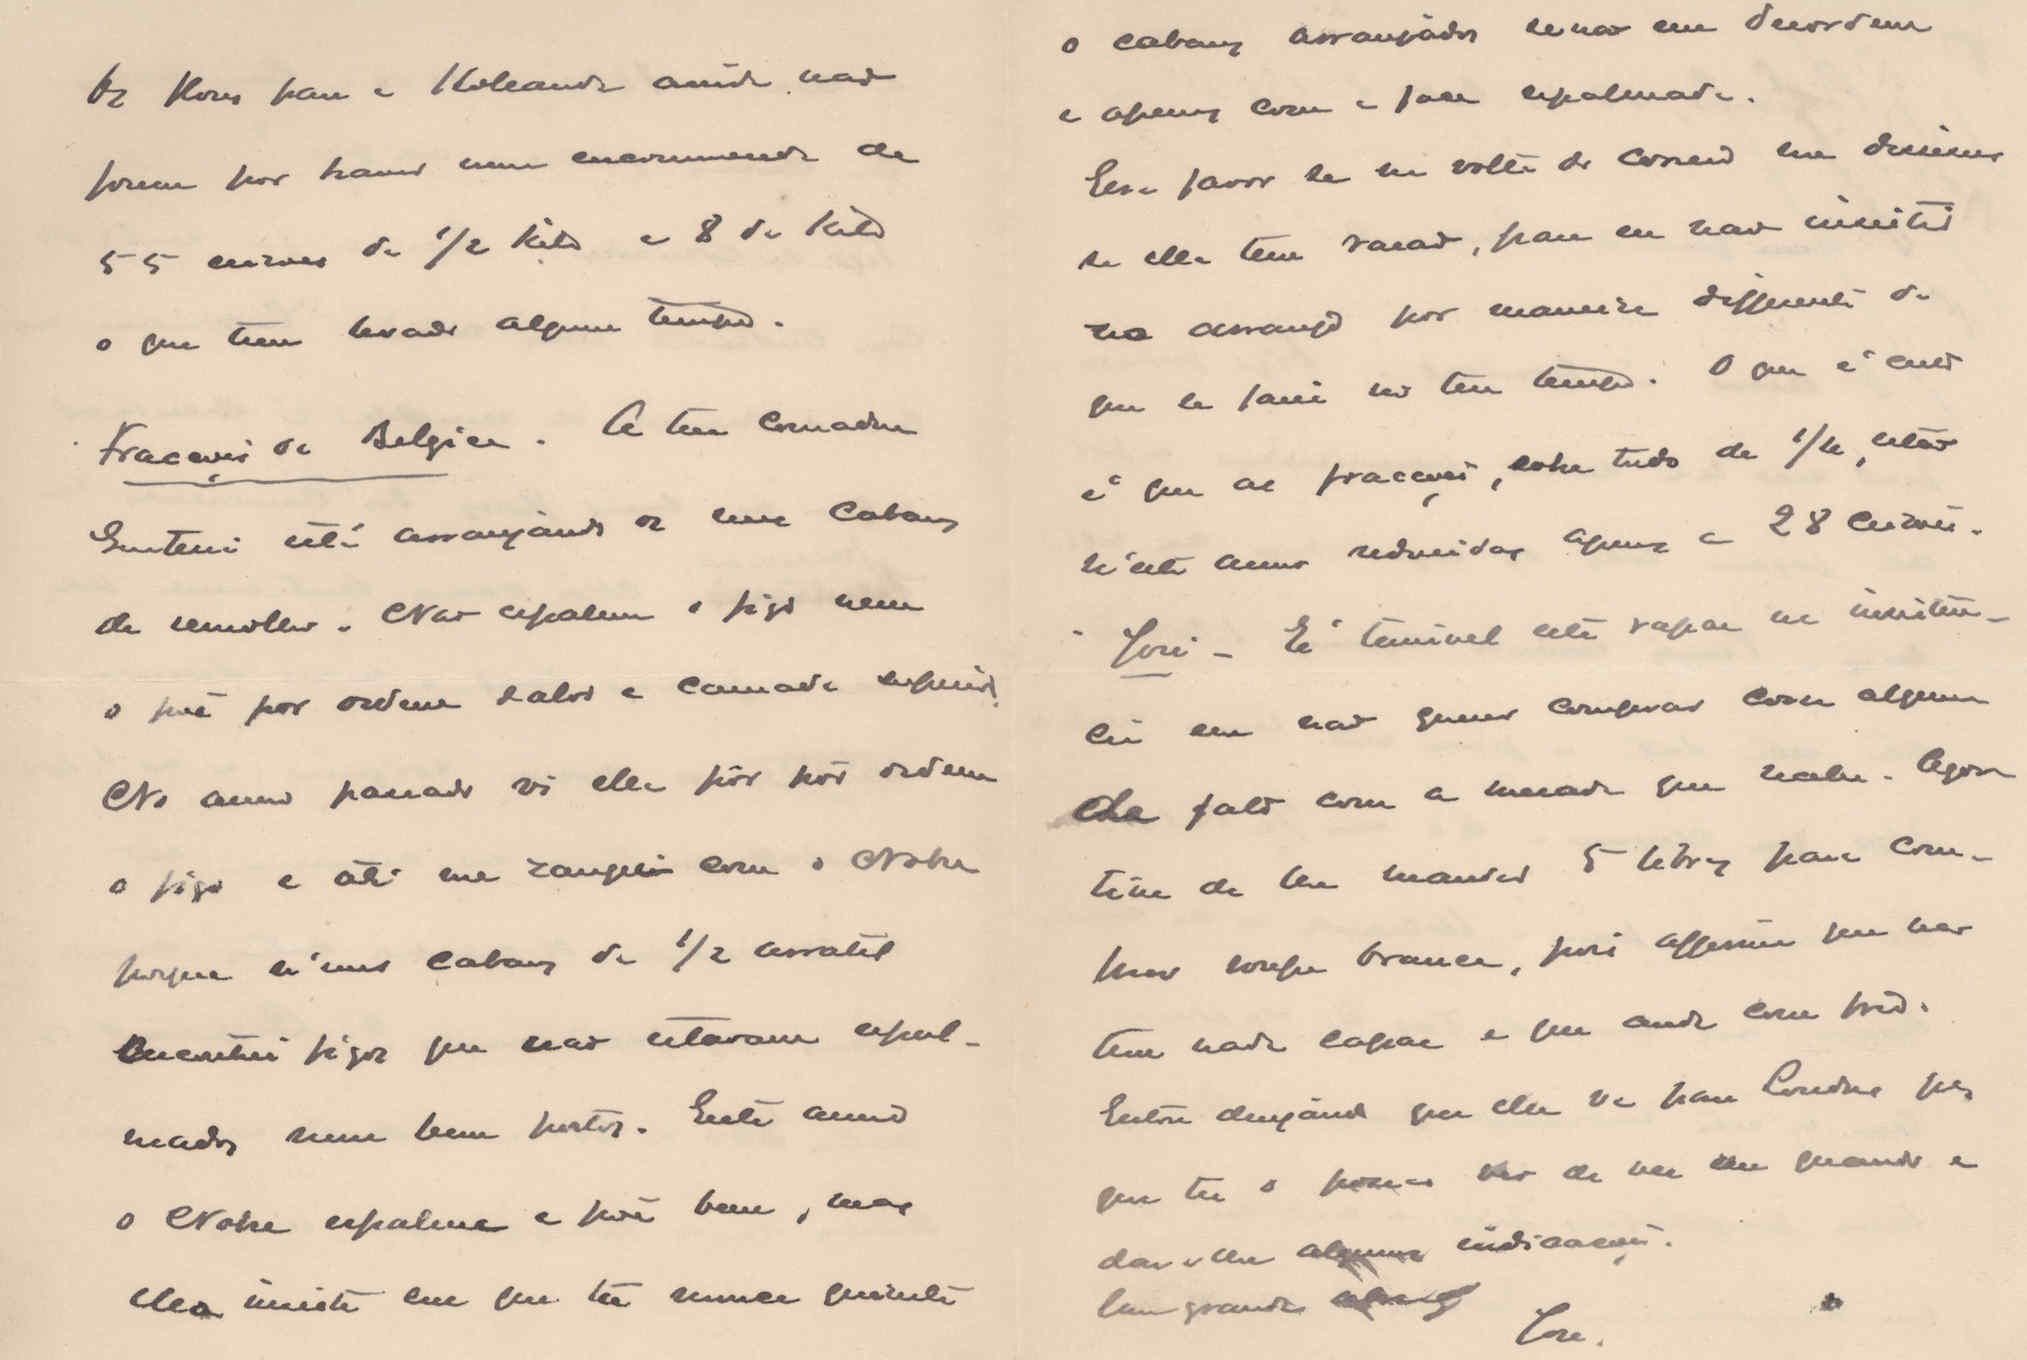 Os flores para a Hollanda ainda não
foram por haver uma encommenda de
55 caixas de 1/2 kilo e 8 de kilo
o que tem levado algum tempo.
Fracções de Belgica. A tua comadre
está arranjando os seus cabazes
de semolha. Não espalma o figo nem
o põe por ordem salvo a camada superior.
No anno passado vi ella pôr por ordem
o figo e até me zanguei com o Nobre
porque n'uns cabazes de 1/2 arratel
encontrei figos que não estavam espal-
mados nem bem postos. Este anno
o Nobre espalma e põe bem, mas
ella insiste em que tu nunca quizeste
o cabazes arranjados senão em desordem
e apenas com a face espalmada.
Era favor se na volta do correio me dissesses
se ella tem razão, para eu não insistir
no arranjo por maneira differente de
que se fazia no teu tempo. O que é certo
é que as fracções, sobre tudo de 1/4, estão
n'este anno reduzidas apenas a 28 caixas.
José - É terrivel este rapaz na insisten-
cia em não querer comprar coisa alguma
de fato com a mesada que recebe. Agora
tive de lhe mandar 5 libras para com-
prar roupa branca, pois affirma que não
tem nada capaz e que anda com frio.
Estou desejando que elle vá para Londres para
que tu o possas ver de vez em quando e
dar-lhe algumas indicações.
Um grande
José.